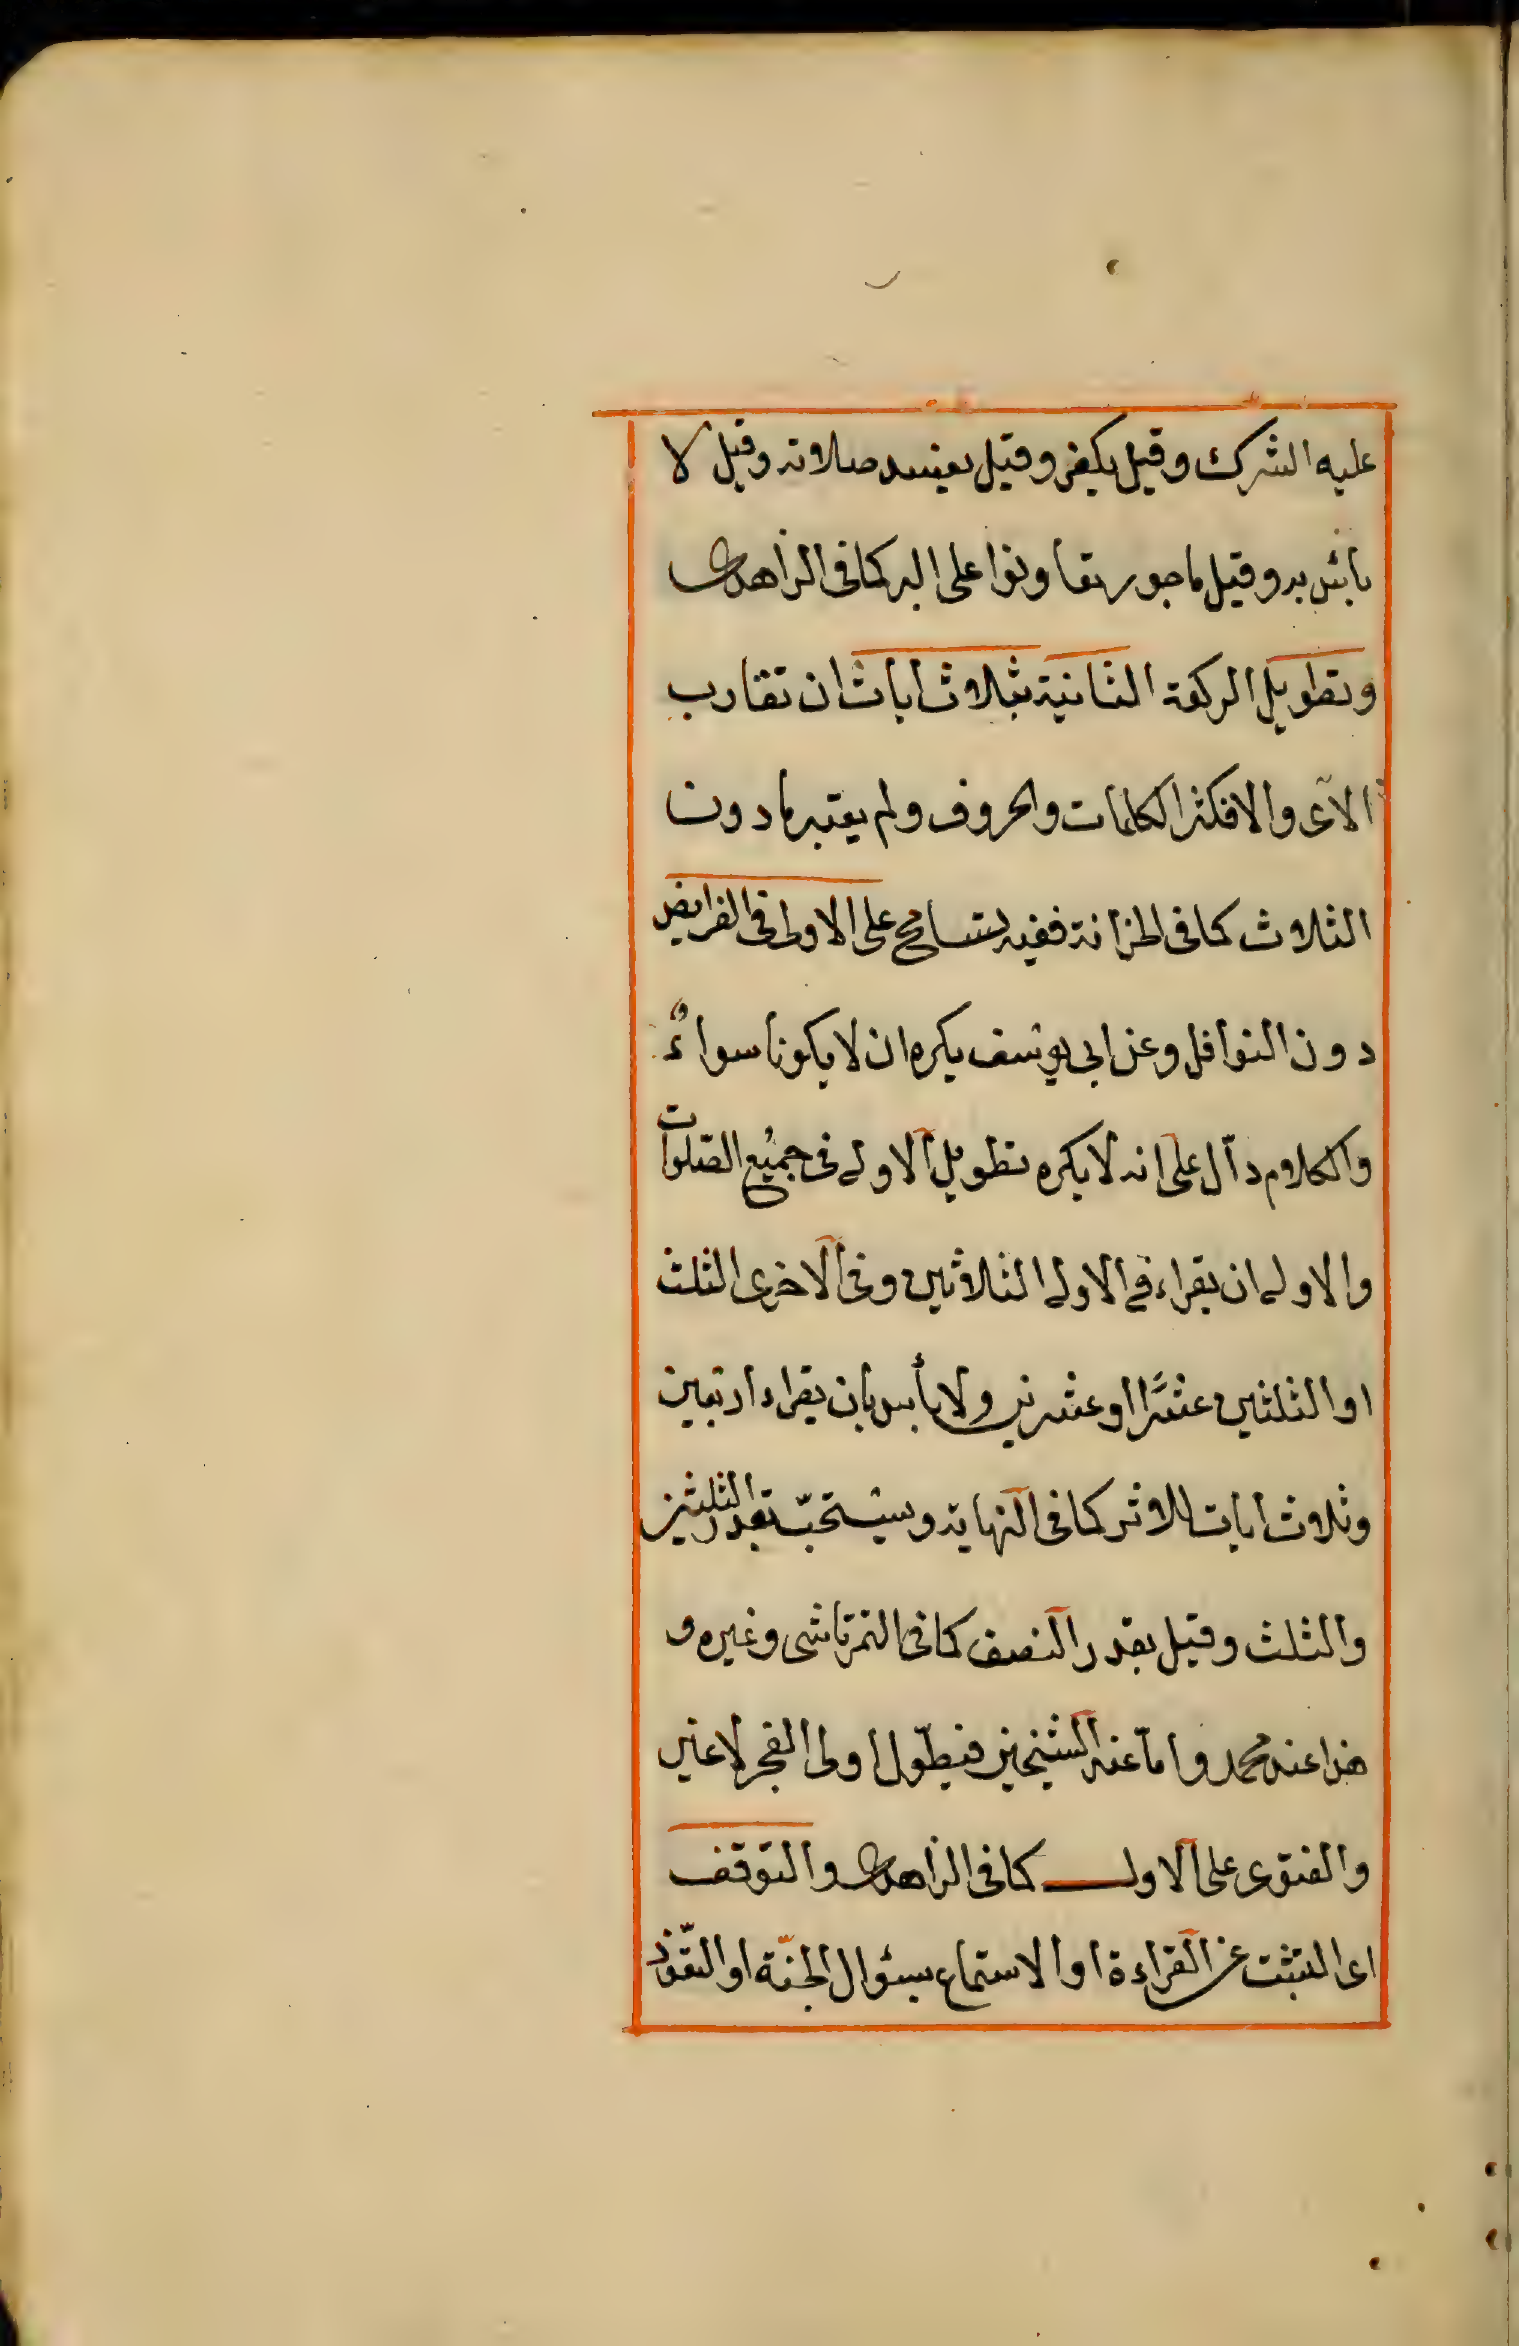 عليه الشرك وقيل يكفر وقيل يفسد صلاته وقيل لا
بأس به وقيل ماجور تعاونوا على البر كما فى الزاهدى
وتطويل الركعة الثانية بثلاث ايات ان تقارب
الآى والا فكثر الكلمات والحروف ولم يعتبر ما دون
الثلاث كما فى الخزانة ففيه تسامح على الاولى فى الفرايض
دون النوافل وعن ابى يوسف يكره ان لا يكونا سواءً
والكلام دآل على انه لا يكره تطويل الاولى فى جميع الصّلوات
والاولى ان يقراء فى الاولى الثلاثين وفى الاخرى الثلث
او الثلثين عشرًا او عشرين ولا بأس بان يقراء اربعين
وثلاث ايات للاثر كما فى النهاية ويستحبّ بقدر الثلثين
والثلث وقيل بقدر النصف كما فى التمرتاشى وغيره و
هذا عند محمد وامّا عند الشيخين فيطوّل اولى الفجر لا غير
والفتوى على الاول كما فى الزاهدى والتوقف
اى التثبت عن القراءة او الاستماع بسؤال الجنّة او التعّوذ